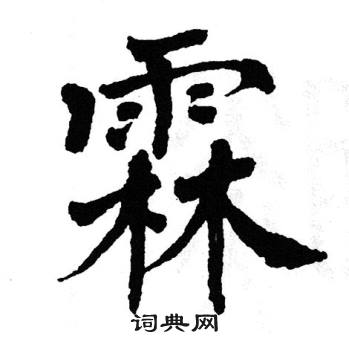 霖
词典网